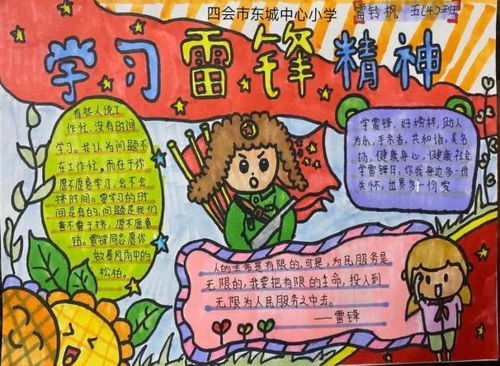 四会市东城中心小学
雷铃枫 五(4)班
学习雷锋精神
有些人说工
作忙、没有时间
学习。我认为问题不
在工作忙,而在于你
愿不愿意学习,会不会
挤时间。要学习的时
间是有的,问题是我们
善不善于挤,愿不愿意
钻。雷锋同志愿你
做暴风雨中的
松柏。
学雷锋,好榜样,助人
为乐,手牵着,共和谐,美名
扬,健康身心,健康社会
学雷锋月,你我身边多一份
关怀,世界多一份爱
人的生命是有限的,可是,为民服务是
无限的,我要把有限的生命,投入到
无限为人民服务之中去。
——雷锋